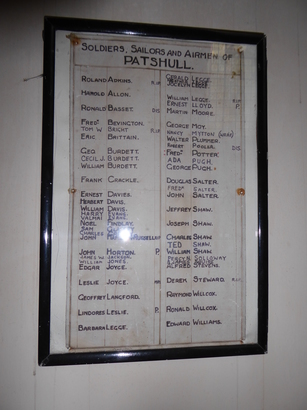 SOLDIERS, SAILORS AND AIRMEN OF
PATSHULL.
ROLAND ADKINS. R.I.P
HAROLD ALLON.
RONALD BASSET. DIS
FREDT BEVINGTON.
TOM W BRIGHT R.I.P
ERIC BRITTAIN.
GEO BURDETT.
CECIL J. BURDETT
WILLIAM BURDETT.
FRANK CRACKLE.
ERNEST DAVIES.
HERBERT DAVIS.
WILLIAM DAVIS.
HARRY EVANS.
EVANS.
NOEL
SAM
CHARLES
JOHN
JOHN HORTON. P.
JAMES W. JACKSON.
WILLIAM JONES.
EDGAR JOYCE.
LESLIE JOYCE.
GEOFFREY LANGFORD.
LINDORES LESLIE. P.
BARBARA LEGGE.
GERALD LEGGE.
JOCELYN LEGGE.
WILLIAM LEGGE. R.I.P
ERNEST LLOYD. P.
MARTIN MOORE.
GEORGE MOY.
HYTTON
WALTER PLUMMER.
ROBERT DIS
FREDT POTTER.
ADA PUGH.
GEORGE PUGH.
DOUGLAS SALTER.
FREDT SALTER.
JOHN SALTER.
JEFFREY SHAW.
JOSEPH SHAW.
CHARLES SHAW.
TED SHAW.
WILLIAM SHAW.
PERCY N. SOLLOWAY
ALFRED STEVENS.
DEREK STEWARD. R.I.P.
RAYMOND WILCOX.
RONALD WILLCOX.
EDWARD WILLIAMS.